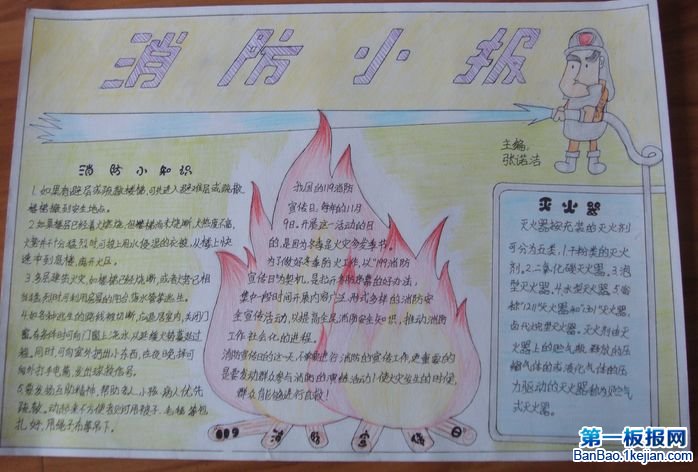 消防小报
主编：
张诺洁
消防小知识
1.如果有避层或疏散楼梯,可先进入避难层或疏散
楼梯撤到安全地点。
2.如果楼层已经着火燃烧,但楼梯尚未烧断,火势
十分猛烈时可披上用水浸湿的衣被,从楼上快
速冲到底楼,离开火区。
3.多层建筑火灾,如楼梯已经烧断,或者火势已相
当猛烈时可利用房屋的阳台落水管
4.如各种逃生的路线被切断,应退居室内,关闭门
窗,有条件时可向门窗上浇水,以延缓火势蔓延过
程,同时,可向室外扔出小东西,在夜晚,
向外打手电筒,发出求救信号。
5.要发扬互助精神,帮助老人、小孩、病人优先
疏散。 可用被子、毛毯等包
扎好,用绳子布条吊下。
我国的119消防
宣传日,每年的11月
9日。开展这一活动的目
的,是因为冬季是火灾多发季节。
为了做好冬季防火工作,以“119消防
宣传日”为契机,
集中一段时间开展内容广泛、形式多样的消防安
全宣传活动,以提高全民消防安全知识,推动消防
工作社会化的进程。
消防宣传日的这一天,不单单进行消防的宣传工作,更重要的
是要发动群众参与消防的演练活动!使火灾发生的时候,
群众能够进行自救!
119消防宣传日
灭火器
灭火器按充装的灭火剂
可分为五类,1.干粉类的灭火
剂。2.二氧化碳灭火器。3.泡
沫型灭火器。4.水型灭火器。5.
“1211”灭火器和“1301”灭火器,
卤代烷型灭火器。灭火剂由灭
火器上的贮气瓶释放的压
缩气体的或液化气体的压
力驱动的灭火器称为贮气
式灭火器。
第一板报网
BanBao.1kejian.com